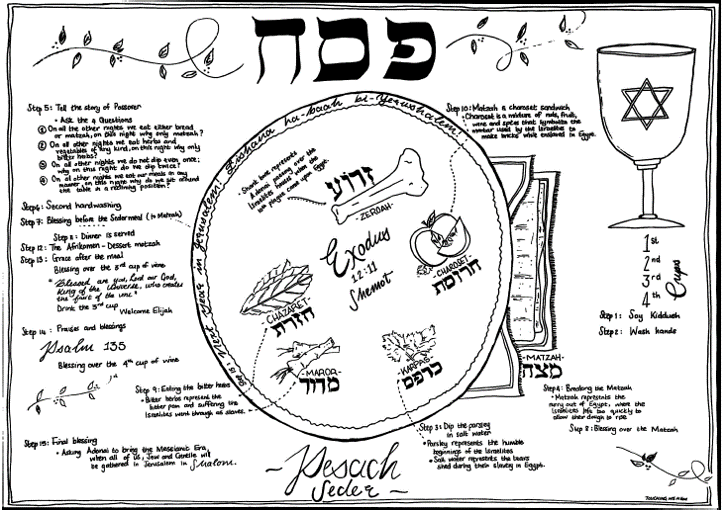 פסח
Step 5: Tell the story of Passover
• Ask the 4 Questions
① On all the other nights we eat either bread
or matzah, on this night why only matzah?
② On all other nights we eat herbs and
vegetables of any kind, on this night why only
bitter herbs?
③ On all other nights we do not dip even once;
why on this night do we dip twice?
④ On all other nights we eat our meals in any
manner, on this night why do we sit around
the table in a reclining position?
Step 6: Second handwashing
Step 7: Blessing before the Seder meal (to Matzah)
Step 11: Dinner is served
Step 12: The Afrikomen - Dessert matzah
Step 13: Grace after the meal
Blessing over the 3rd cup of wine
"Blessed are you, Lord our God,
King of the Universe, who creates
the fruit of the vine"
Drink the 3rd cup
Welcome Elijah
Step 14: Praises and blessings
Psalm 135
Blessing over the 4th cup of wine
Step 15: Final blessing
• Asking Adonai to bring the Messianic Era,
when all of us, Jew and Gentile will
be gathered in Jerusalem in Shalom.
Step 9: Eating the bitter herbs
• Bitter herbs represent the
bitter pain and suffering the
Israelites went through as slaves.
Next year in Jerusalem! L'shana ha-baah bi-Yerushalem!
• Shank bone represents
Adonai passing over the
Israelites houses when the
plagues came upon Egypt.
זרוע
-ZEROAH-
Exodus
12:11
Shemot
-CHAROSET-
חריסת
-CHAZARET-
חזרת
-MAROR-
מרור
-KARPAS-
כרפס
Step 10: Matzah & charoset sandwich
• Charoset is a mixture of nuts, fruit,
wine and spices that symbolize the
mortar used by the Israelites to
make bricks while enslaved in Egypt.
1st
2nd
3rd
4th
Cups
Step 1: Say Kiddush
Step 2: Wash hands
-MATZAH-
מצה
Step 4: Breaking the Matzah
• Matzah represents the
hurry out of Egypt, where the
Israelites left too quickly to
allow their dough to rise
Step 8: Blessing over the Matzah
Step 3: Dip the parsley
in salt water
• Parsley represents the humble
beginnings of the Israelites
• Salt water represents the tears
shed during their slavery in Egypt.
-Pesach
Seder-